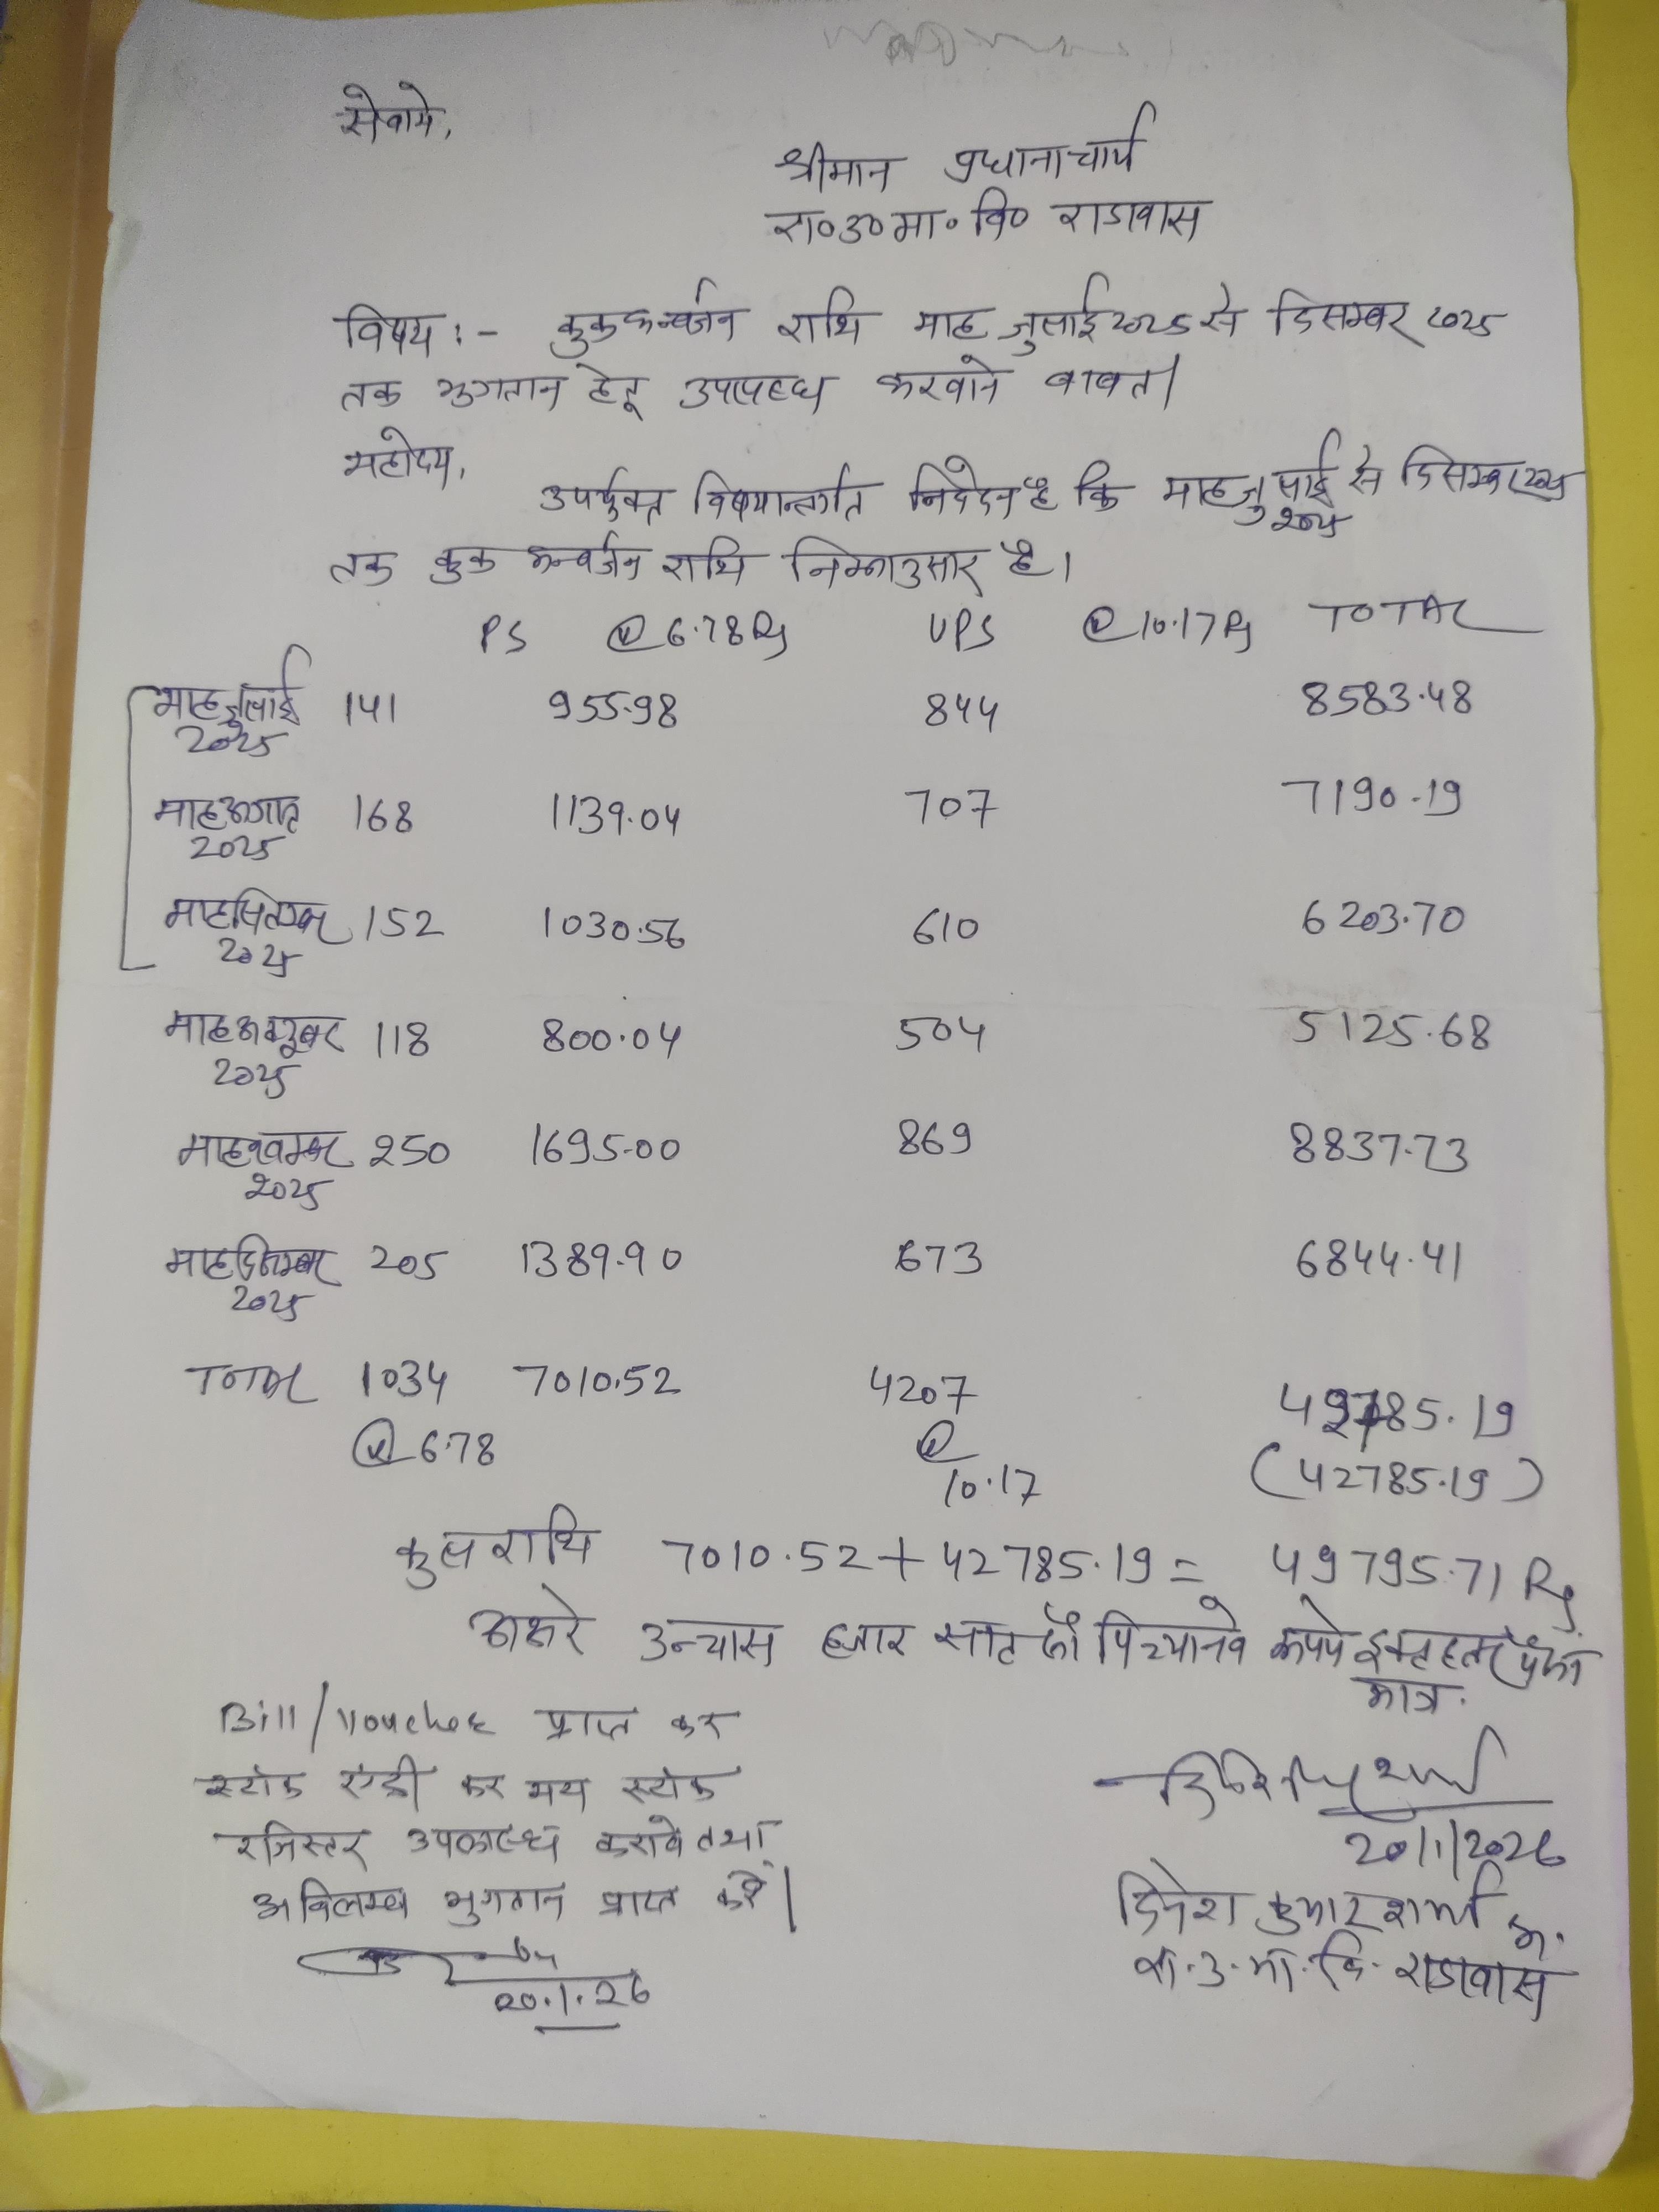 सेवामे,
श्रीमान प्रधानाचार्य
रा०उ०मा०वि० राडावास
विषय :- कुककन्वर्जन राशि माह जुलाई 2025 से दिसम्बर 2025
तक भुगतान हेतू उपलब्ध करवाने बाबत।
महोदय,
उपर्युक्त विषयान्तर्गत निवेदन है कि माह जुलाई 2025 से दिसम्बर 2025
तक कुक कन्वर्जन राशि निम्नानुसार है।
PS @6.78 Rs UPS @10.17 Rs TOTAL
माह जुलाई 2025 141 955.98 844 8583.48
माह अगस्त 2025 168 1139.04 707 7190.19
माह सितम्बर 2025 152 1030.56 610 6203.70
माह अक्टूबर 2025 118 800.04 504 5125.68
माह नवम्बर 2025 250 1695.00 869 8837.73
माह दिसम्बर 2025 205 1389.90 673 6844.41
TOTAL 1034 7010.52 4207 42785.19
@6.78 @10.17 (42785.19)
कुल राशि 7010.52 + 42785.19 = 49795.71 Rs
अक्षरे उन्चास हजार सात सौ पिच्यानवे रूपये इकहत्तर पैसे
मात्र.
Bill/Voucher प्राप्त कर
स्टॉक एंट्री कर मय स्टॉक
रजिस्टर उपलब्ध करावे तथा
अविलम्ब भुगतान प्राप्त करें।
20.1.26
20/1/2026
दिनेश कुमार शर्मा
रा.उ.मा.वि. राडावास